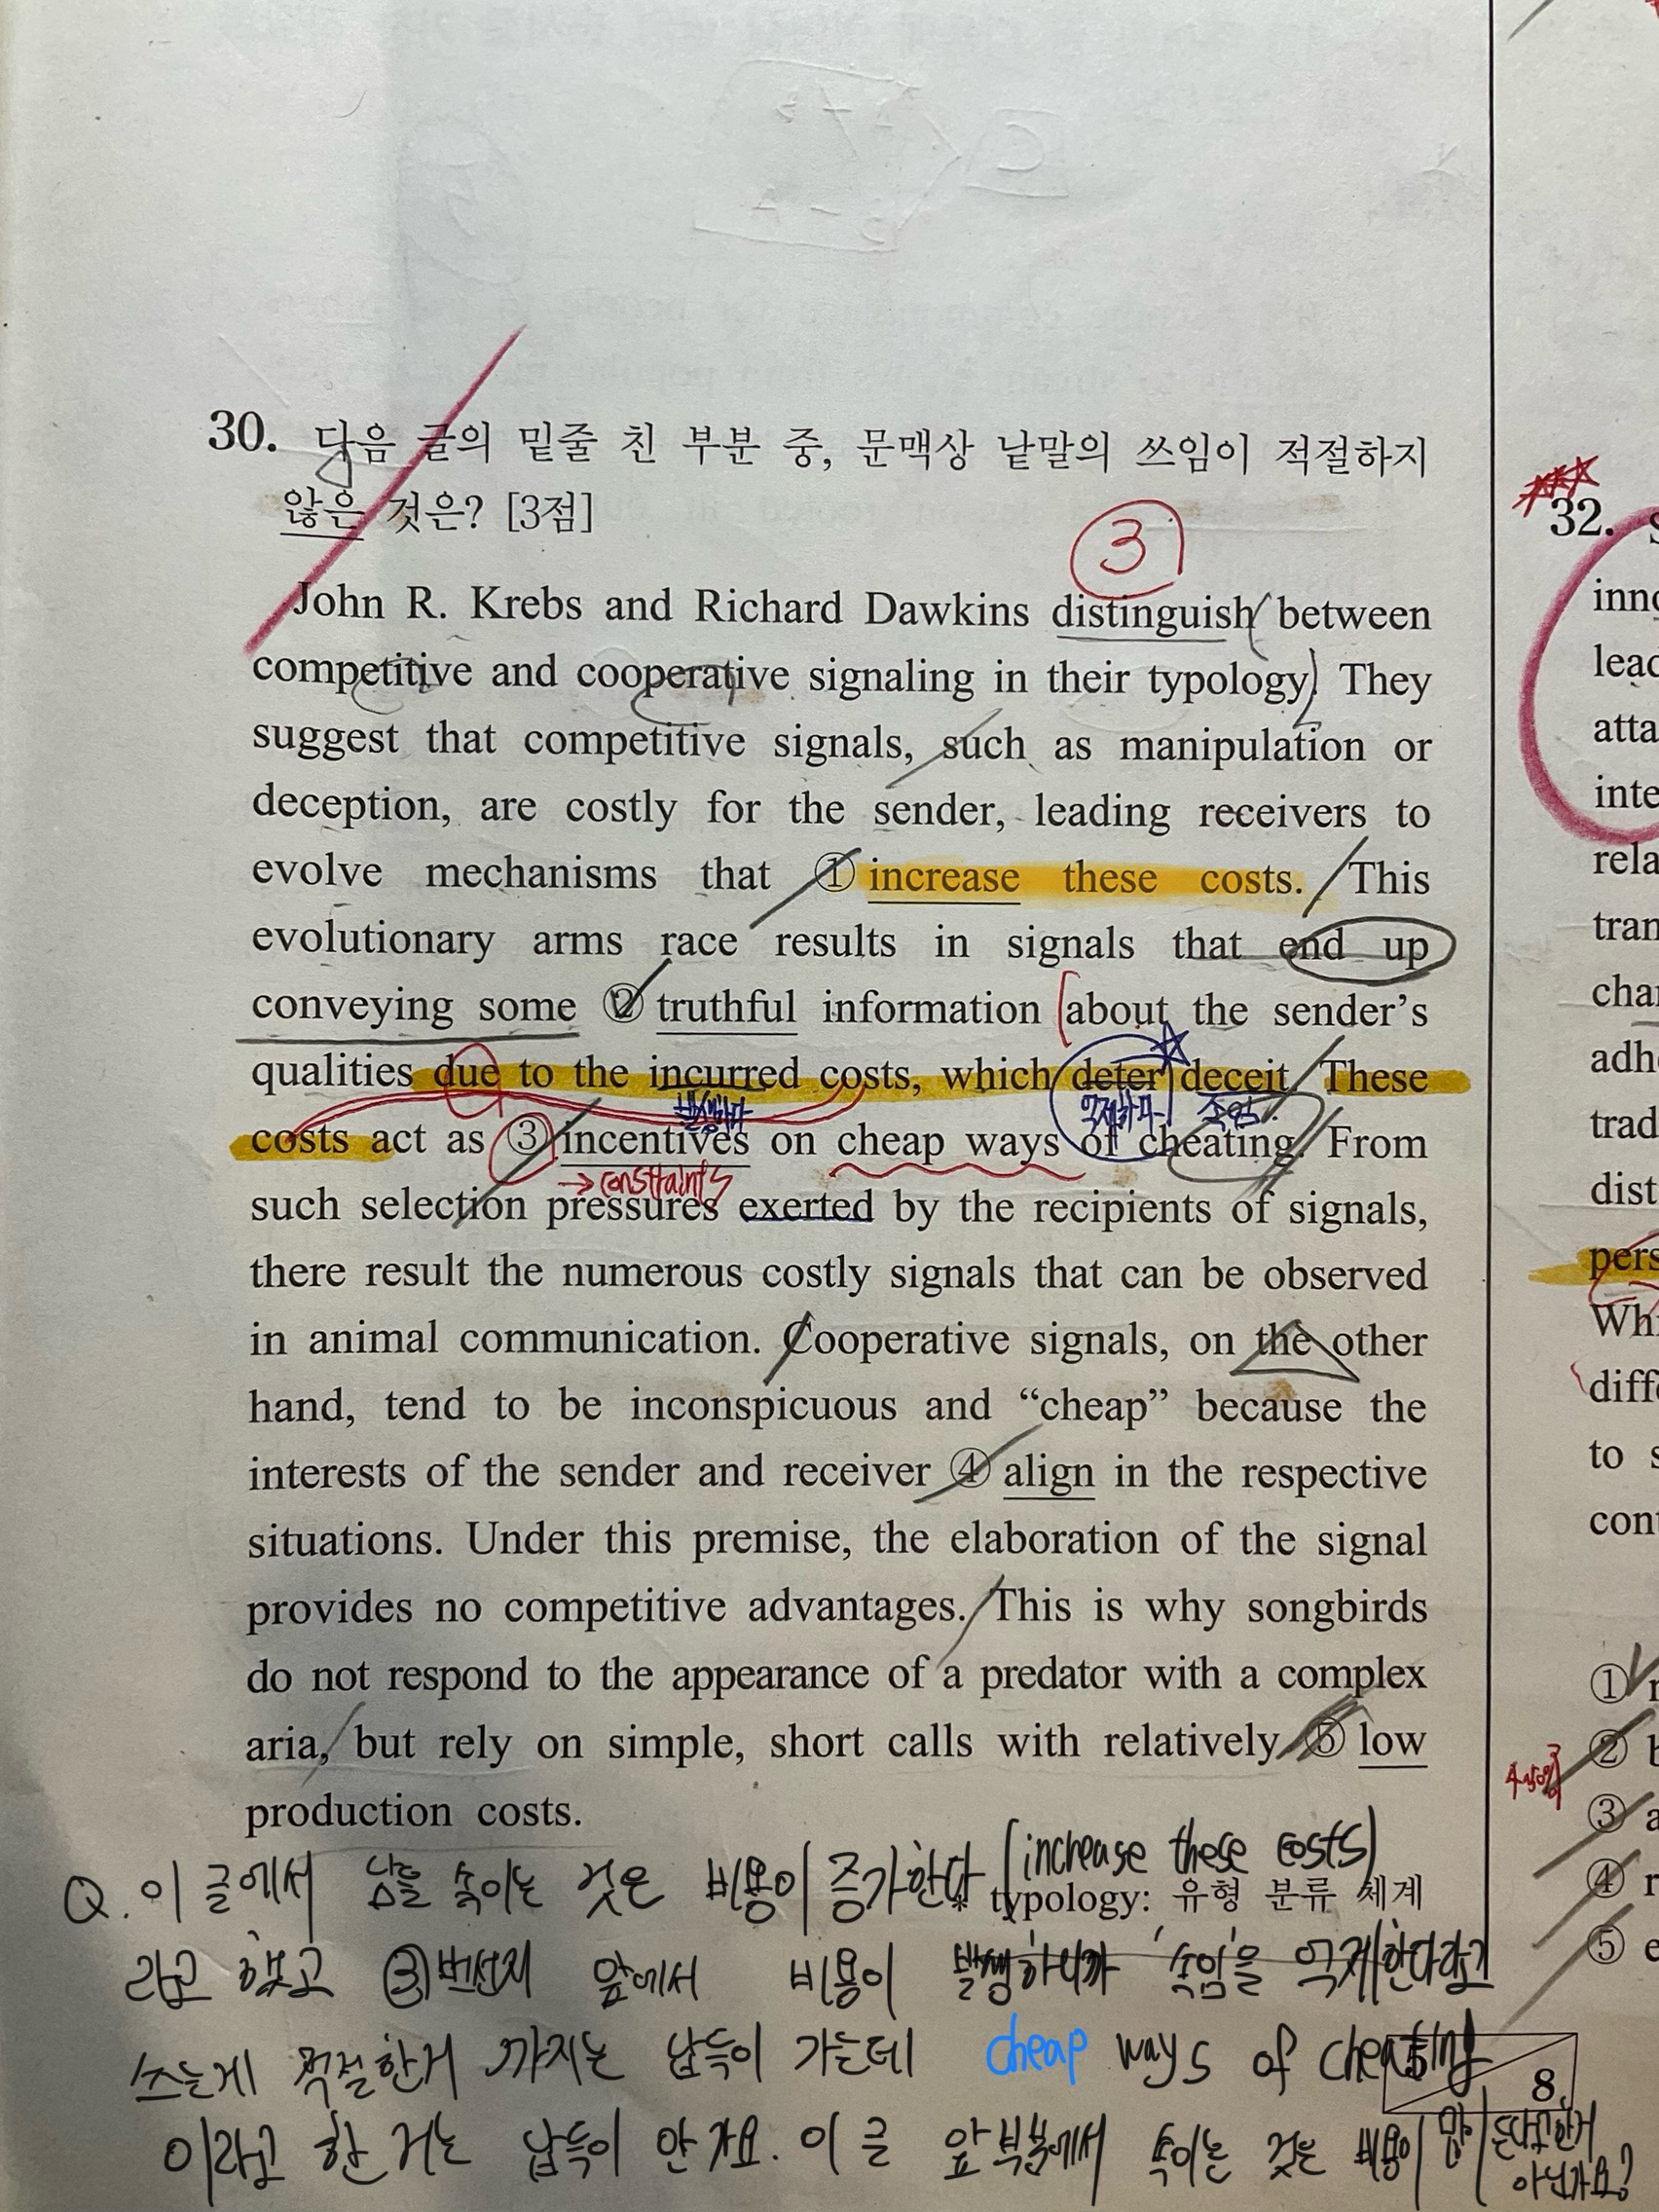 30. 다음 글의 밑줄 친 부분 중, 문맥상 낱말의 쓰임이 적절하지
않은 것은? [3점]
3
John R. Krebs and Richard Dawkins distinguish between
competitive and cooperative signaling in their typology. They
suggest that competitive signals, such as manipulation or
deception, are costly for the sender, leading receivers to
evolve mechanisms that ① increase these costs. This
evolutionary arms race results in signals that end up
conveying some ② truthful information about the sender's
qualities due to the incurred costs, which deter deceit. These
발생하다 억제하다 속임
costs act as ③ incentives on cheap ways of cheating. From
→ constraints
such selection pressures exerted by the recipients of signals,
there result the numerous costly signals that can be observed
in animal communication. Cooperative signals, on the other
hand, tend to be inconspicuous and “cheap” because the
interests of the sender and receiver ④ align in the respective
situations. Under this premise, the elaboration of the signal
provides no competitive advantages. This is why songbirds
do not respond to the appearance of a predator with a complex
aria, but rely on simple, short calls with relatively ⑤ low
production costs.
* typology: 유형 분류 체계
Q. 이 글에서 남을 속이는 것은 비용이 증가한다 (increase these costs)
라고 했고 ③번선지 앞에서 비용이 발생하니까 '속임'을 억제한다라고
쓰는게 적절한거 까지는 납득이 가는데 cheap ways of cheating
이라고 한 거는 납득이 안가요. 이 글 앞부분에서 속이는 것은 비용이 많이 든다고한거
아닌가요?
8
32.
inno
lead
atta
inte
rela
tran
char
adh
trad
dist
pers
Whi
diffe
to s
cont
①
②
③
④
⑤